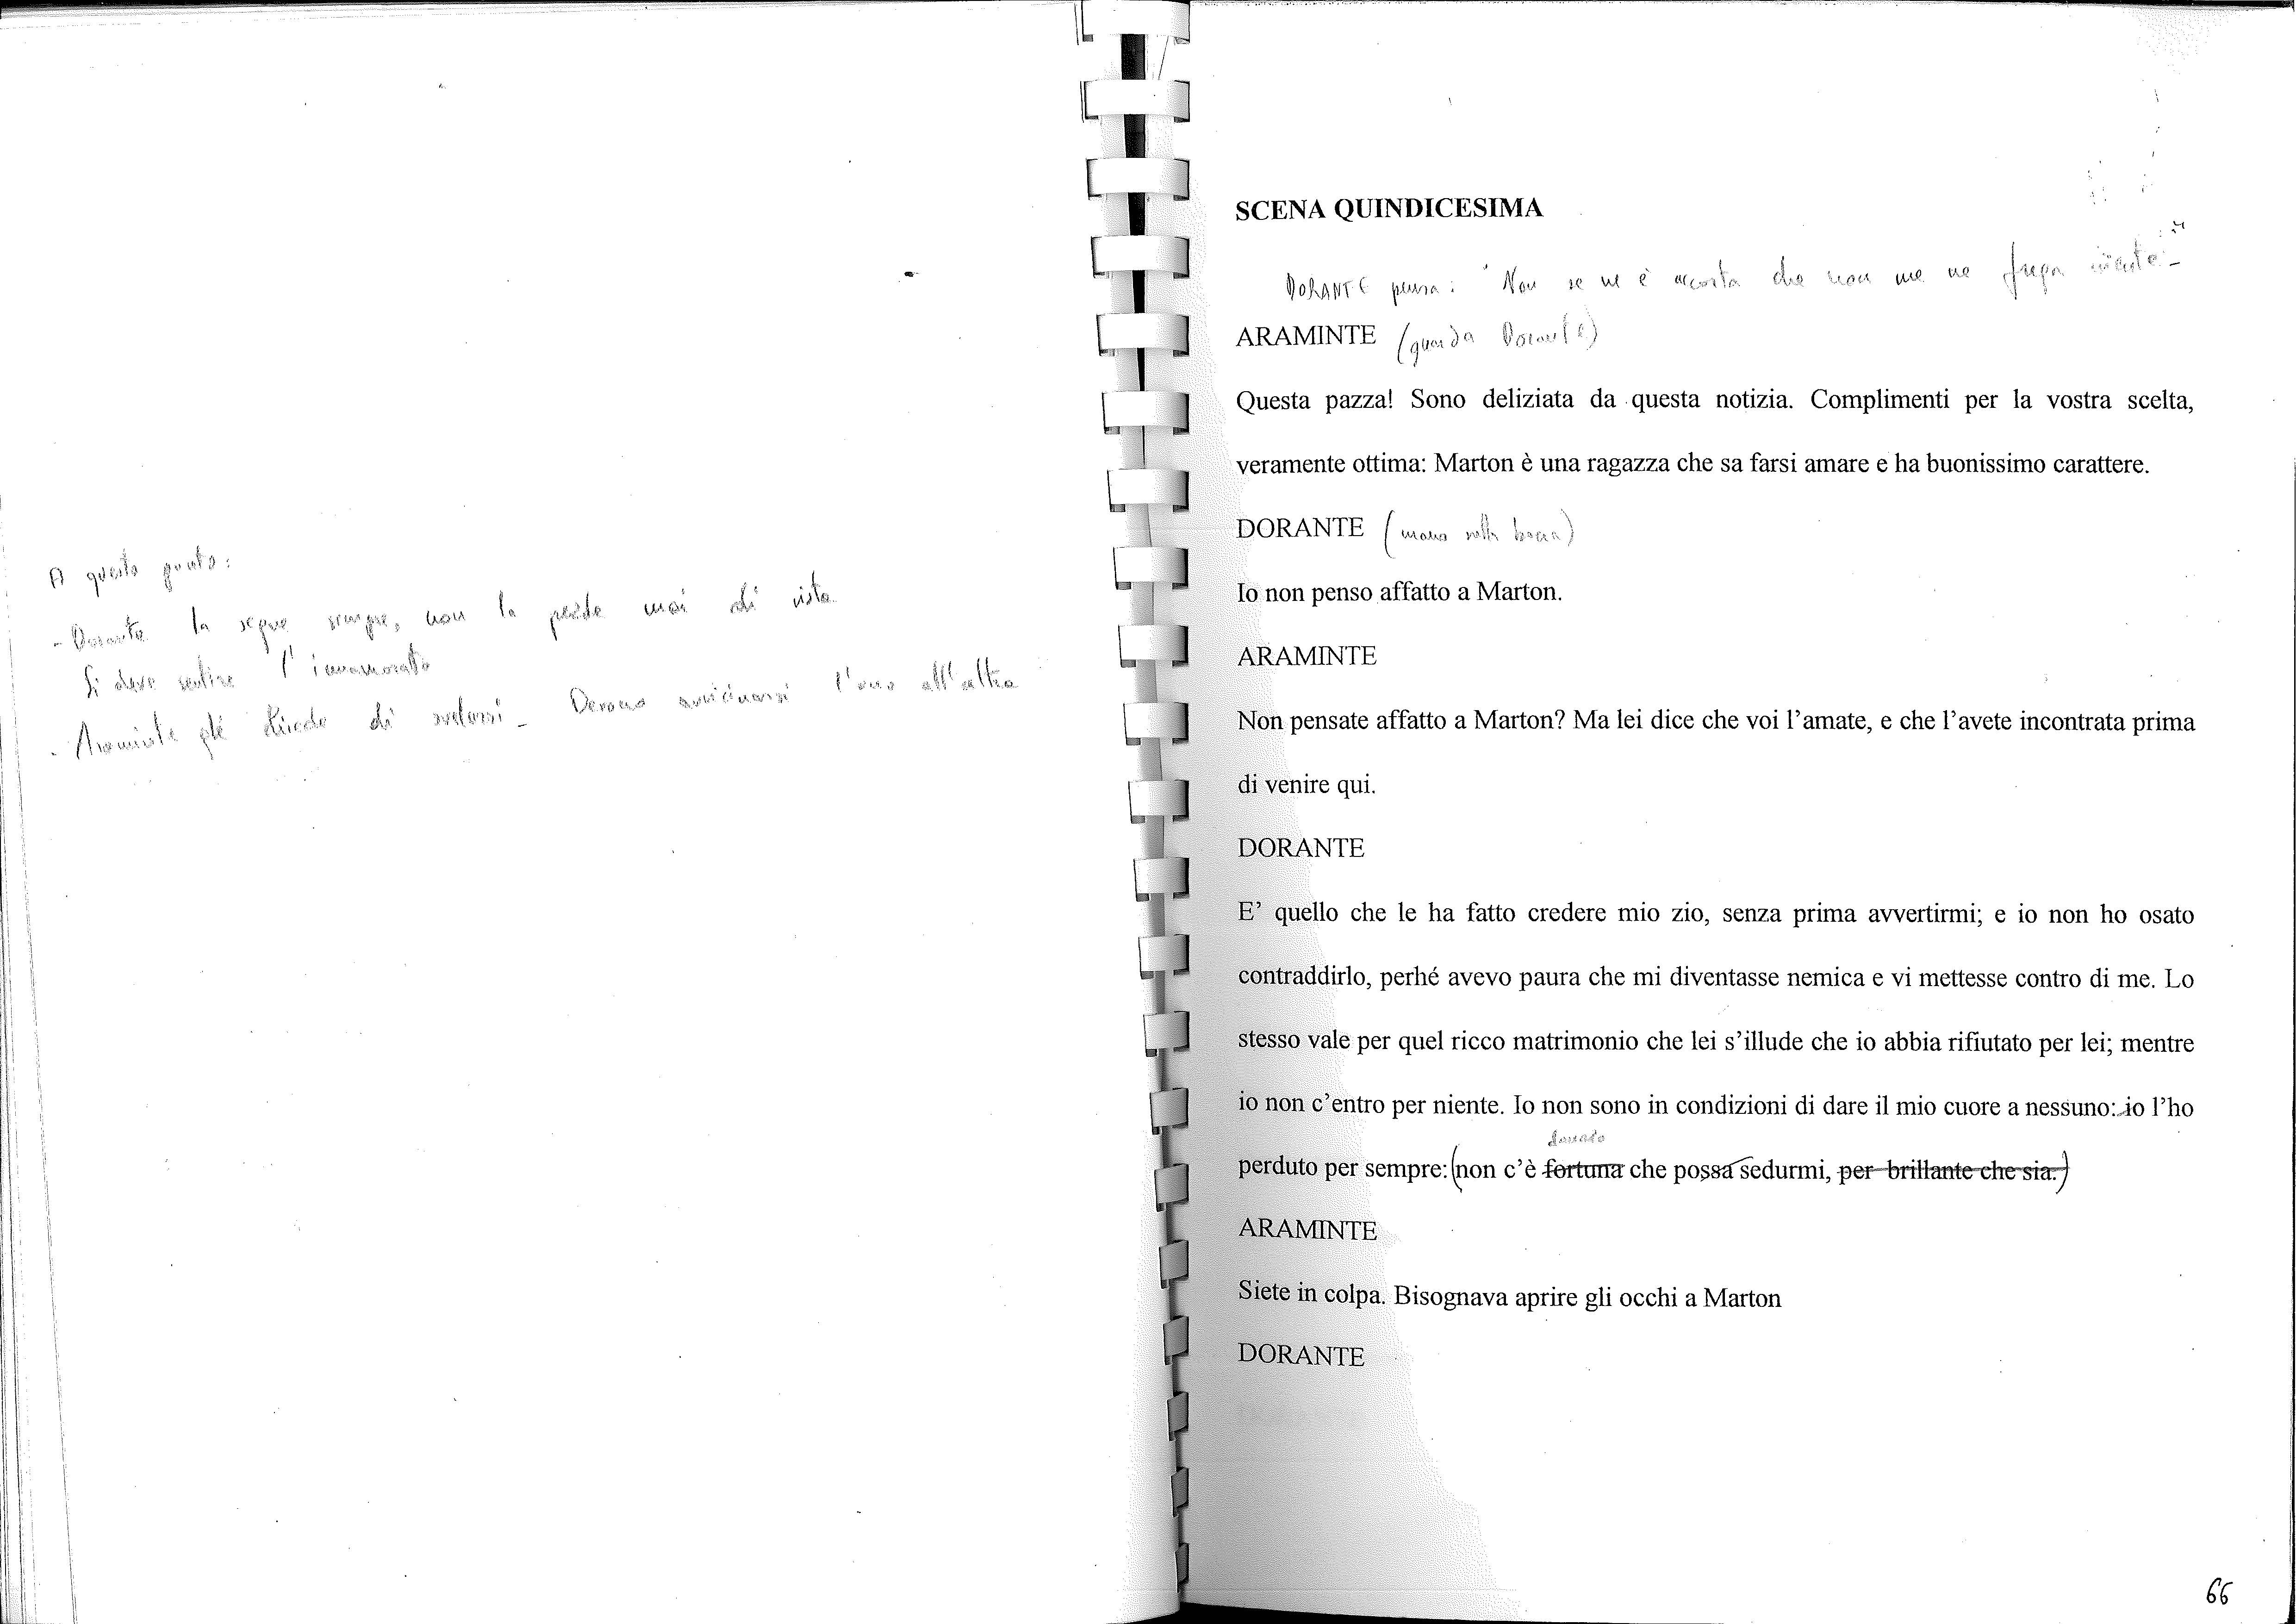 A questo punto:
- Dorante la segue sempre, non la perde mai di vista
Si deve sentire l'innamorato
- Araminte gli chiede di svelarsi - Devono avvicinarsi l'uno all'altra
SCENA QUINDICESIMA
DORANTE pensa: "Non se ne è accorta che non me ne frega niente"-
ARAMINTE (guarda Dorante)
Questa pazza! Sono deliziata da questa notizia. Complimenti per la vostra scelta,
veramente ottima: Marton è una ragazza che sa farsi amare e ha buonissimo carattere.
DORANTE (mano sulla bocca)
Io non penso affatto a Marton.
ARAMINTE
Non pensate affatto a Marton? Ma lei dice che voi l'amate, e che l'avete incontrata prima
di venire qui.
DORANTE
E' quello che le ha fatto credere mio zio, senza prima avvertirmi; e io non ho osato
contraddirlo, perhé avevo paura che mi diventasse nemica e vi mettesse contro di me. Lo
stesso vale per quel ricco matrimonio che lei s'illude che io abbia rifiutato per lei; mentre
io non c'entro per niente. Io non sono in condizioni di dare il mio cuore a nessuno: io l'ho
perduto per sempre: (non c'è fortuna che possa sedurmi, per brillante che sia.)
ARAMINTE
Siete in colpa. Bisognava aprire gli occhi a Marton
DORANTE
66